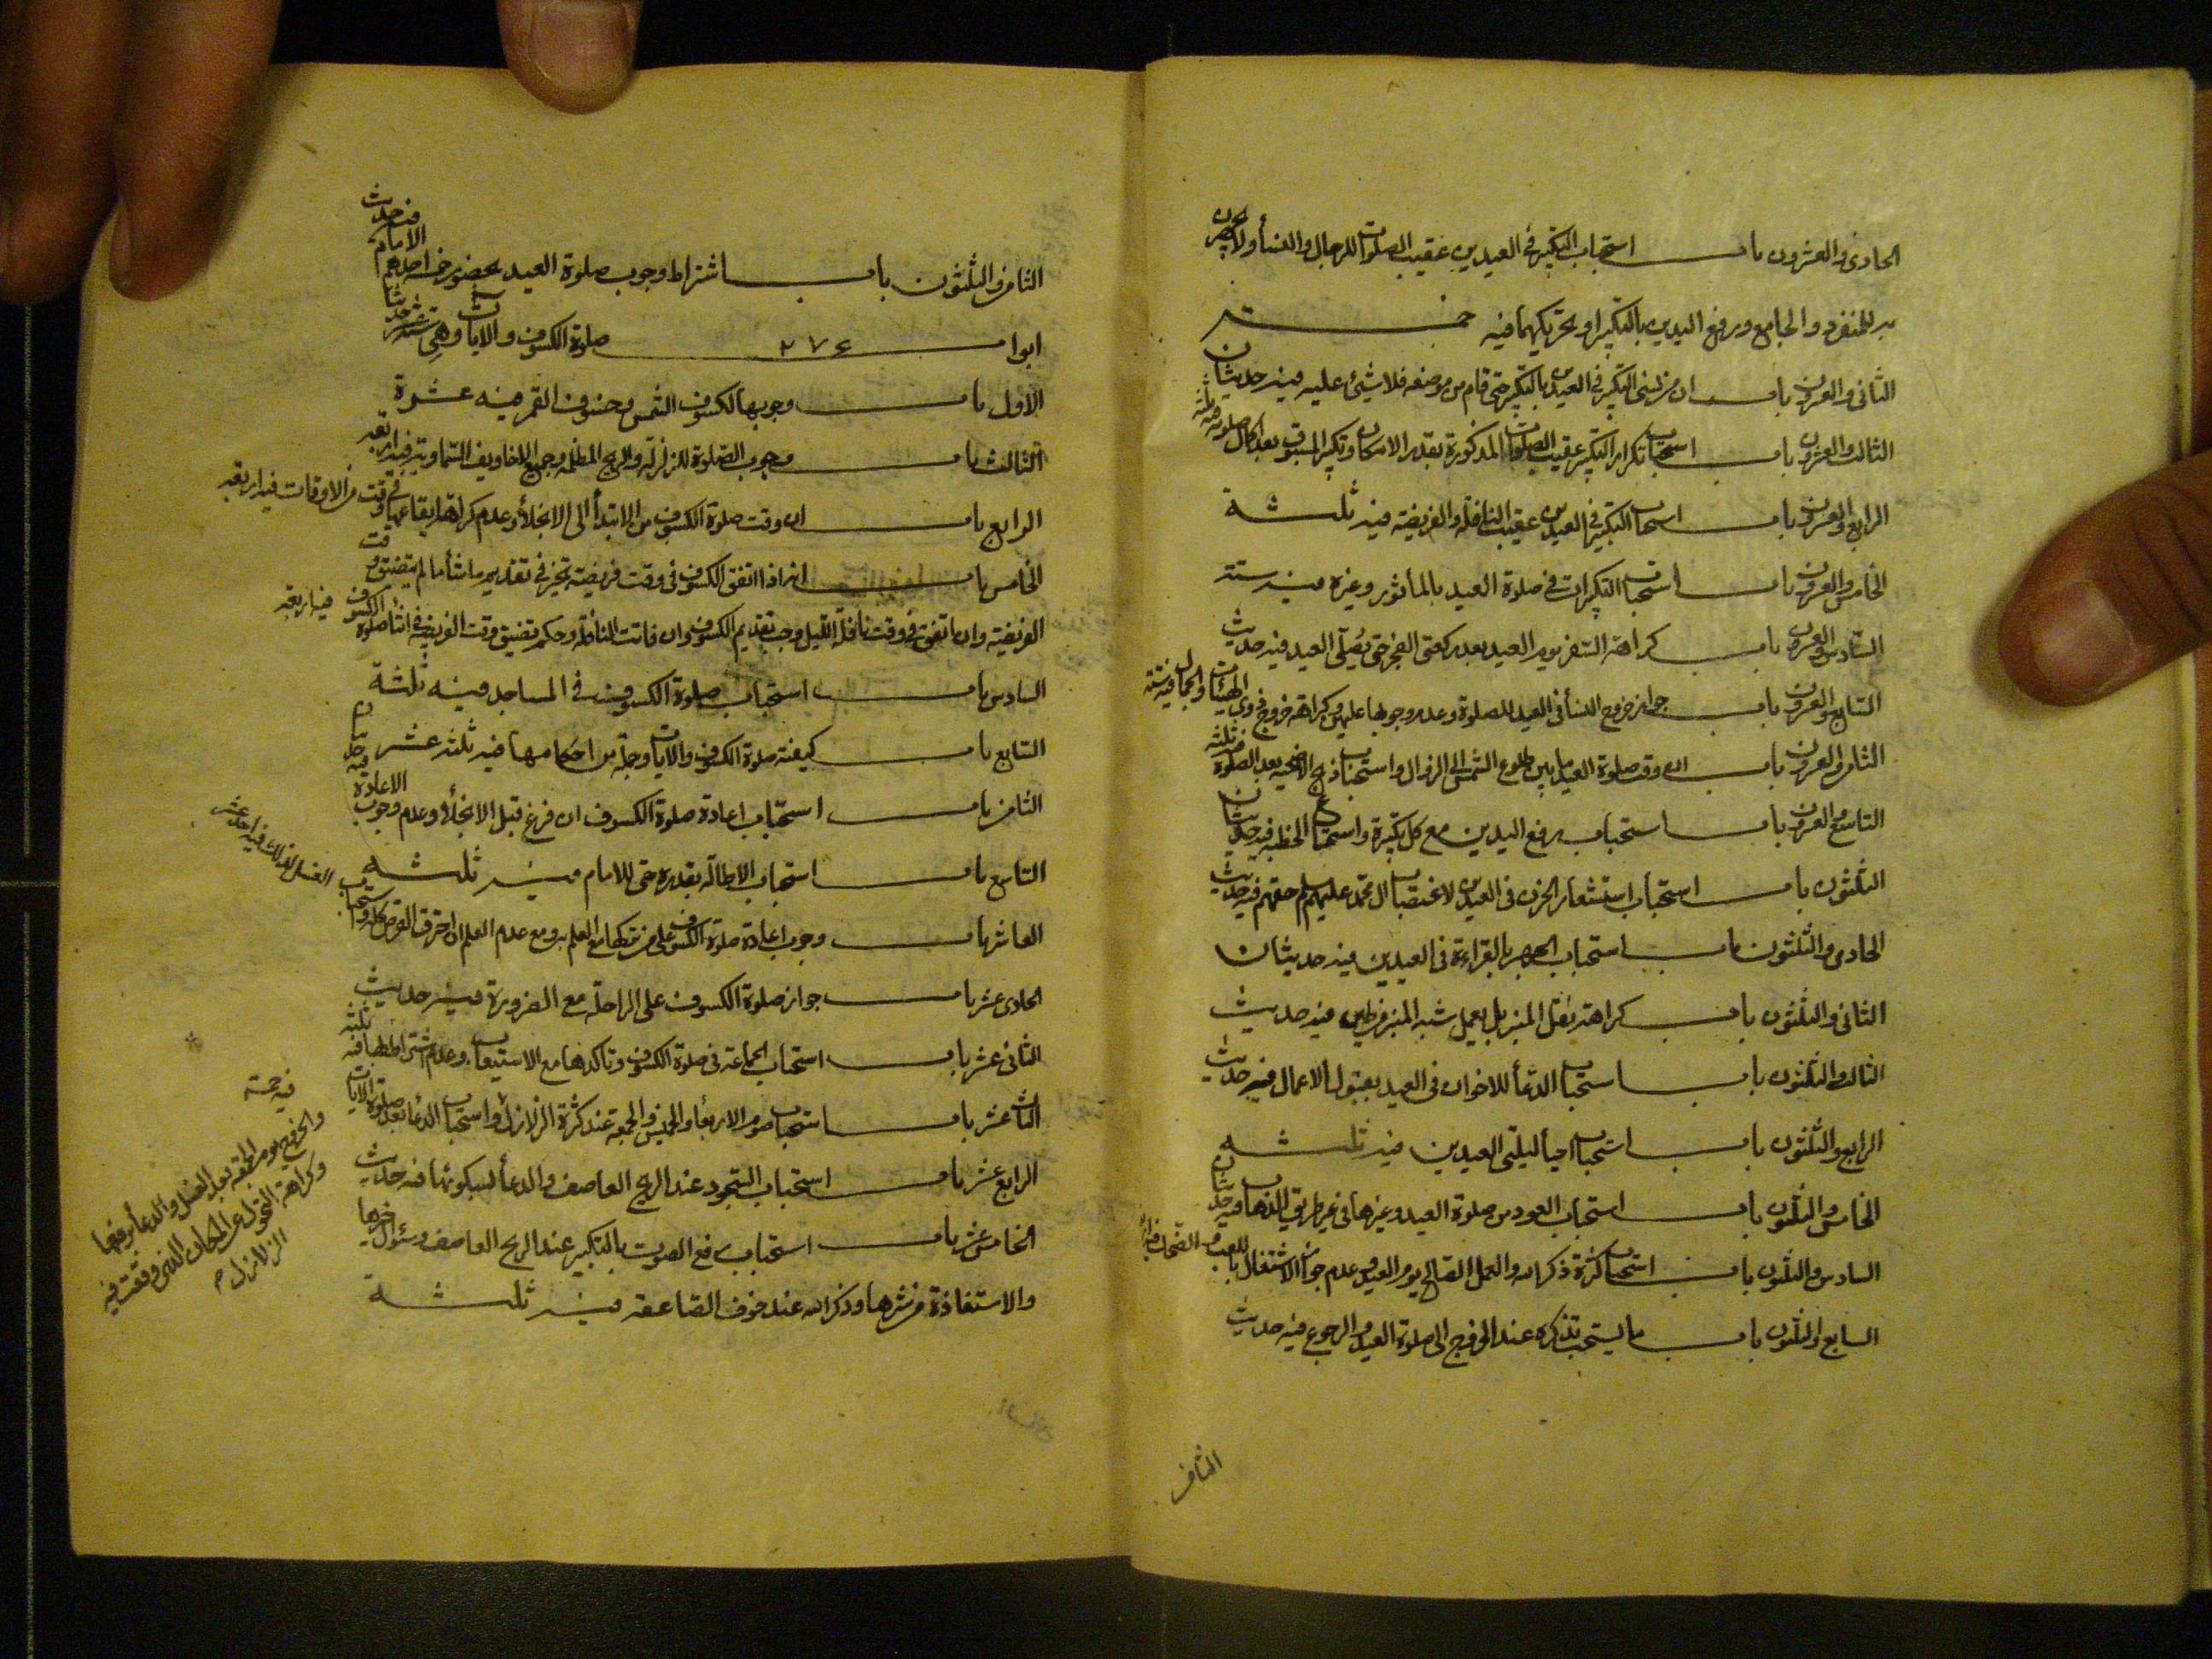 الحادى والعشرون باب استحباب التكبير فى العيدين عقيب الصلوات للرجال والنسأ ولا يجهرن
به للمنفرد والجامع ورفع اليدين بالتكبير او تحريكهما فيه خمسة
الثانى والعشرون باب ان من نسى التكبير فى العيدين بالتكبير حتى قام من موضعه فلا شيئ عليه فيه حديثان
الثالث والعشرون باب استحباب تكرار التكبير عقيب الصلوات المذكورة بقدر الامكان وتكبير المسبوق بعد اكمال صلوته فيه ثلثة
الرابع والعشرون باب استحباب التكبير فى العيدين عقيب النافلة والفريضة فيه ثلثة
الخامس والعشرون باب استحباب التكبيرات فى صلوة العيد بالمأثور وغيره فيه ستة
السادس والعشرون باب كراهة السفر يوم العيد بعد ركعتى الفجر حتى يصلّى العيد فيه حديث
السابع والعشرون باب جواز خروج النسأ فى العيد للصلوة وعدم وجوبها عليهن وكراهة خروج ذوى الهيئات والجمال فيه ستة
الثامن والعشرون باب ان وقت صلوة العيد ما بين طلوع الشمس الى الزوال واستحباب ذبح الاضحية بعد الصلوة فيه ثلثة
التاسع والعشرون باب استحباب رفع اليدين مع كل تكبيرة واستماع الخطبة فيه حديثان
الثلثون باب استحباب استشعار الحزن فى العيدين لاغتصاب ال محمد عليهم السلم حقهم فيه حديث
الحادى والثلثون باب استحباب الجهر بالقراءة فى العيدين فيه حديثان
الثانى والثلثون باب كراهة نقل المنبر بل يعمل شبه المنبر من طين فيه حديث
الثالث والثلثون باب استحباب الدعأ للاخوان فى العيد بقبول الاعمال فيه حديث
الرابع والثلثون باب استحباب احيأ ليلتى العيدين فيه ثلثة
الخامس والثلثون باب استحباب العود من صلوة العيد وغيرها فى غير طريق الذهاب فيه حديثان
السادس والثلثون باب استحباب كثرة ذكر الله والعمل الصالح يوم العيد وعدم جواز الاشتغال باللعب والضحك فيه
السابع والثلثون باب ما يستحب تذكره عند الخروج الى صلوة العيد والرجوع فيه حديث
الثامن
الثامن والثلثون باب اشتراط وجوب صلوة العيد بحضور خمسة احدهم الامام فيه حديث
ابواب ٢٧٤ صلوة الكسوف والايات وهى ستة عشر حديثا
الاول باب وجوبها لكسوف الشمس وخسوف القمر فيه عشرة
الثالث باب وجوب الصلوة للزلزلة والريح المظلمة وجميع الاخاويف السماوية فيه اربعة
الرابع باب ان وقت صلوة الكسوف من الابتدأ الى الانجلأ وعدم كراهة ايقاعها فى وقت من الاوقات فيه اربعة
الخامس باب انه اذا اتفق الكسوف فى وقت فريضة تخير فى تقديم ما شأ ما لم يتضيق وقت
الفريضة وان اتفق فى وقت نافلة الليل وجب تقديم الكسوف وان فاتت النافلة وحكم تضيق وقت الفريضة فى اثنأ صلوة الكسوف فيه اربعة
السادس باب استحباب صلوة الكسوف فى المساجد فيه ثلثة
السابع باب كيفية صلوة الكسوف والايات وجملة من احكامها فيه ثلثة عشر
الثامن باب استحباب اعادة صلوة الكسوف ان فرغ قبل الانجلأ وعدم وجوب الاعادة فيه حديثان
التاسع باب استحباب الاطالة بقدره حتى للامام فيه ثلثة
العاشر باب وجوب اعادة صلوة الكسوف على من تركها مع العلم به ومع عدم العلم ان احترق القرص كله واستحباب الغسل لذلك فيه احد عشر
الحادى عشر باب جواز صلوة الكسوف على الراحلة مع الضرورة فيه حديث
الثانى عشر باب استحباب الجماعة فى صلوة الكسوف وتاكدها مع الاستيعاب وعدم اشتراطها فيه ثلثة
الثالث عشر باب استحباب صوم الاربعأ والخميس والجمعة عند كثرة الزلازل واستحباب الدعأ بعد صلوة الايات
والخروج يوم الجمعة بعد الغسل والدعأ برفعها
وكراهة التحول عن المكان الذى وقعت فيه
الزلازل
فيه خمسة
الرابع عشر باب استحباب السجود عند الريح العاصف والدعأ لسكونها فيه حديث
الخامس عشر باب استحباب رفع الصوت بالتكبير عند الريح العاصف وسئوال خيرها
والاستعاذة من شرها وذكر الله عند خوف الصاعقة فيه ثلثة